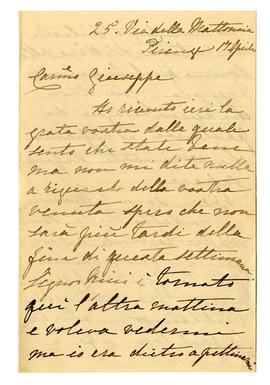 25. Via della Mattonaia
Firenze 17 Aprile
Carmo Giuseppe
Ho ricevuto ieri la
grata vostra dalla quale
sento che state bene
ma non mi dite nulla
a riguardo della vostra
venuta spero che non
sarà più tardi della
fine di questa settimana
Signor Nini è tornato
qui l'altra mattina
e voleva vedermi
ma io era dietro a pettinarmi